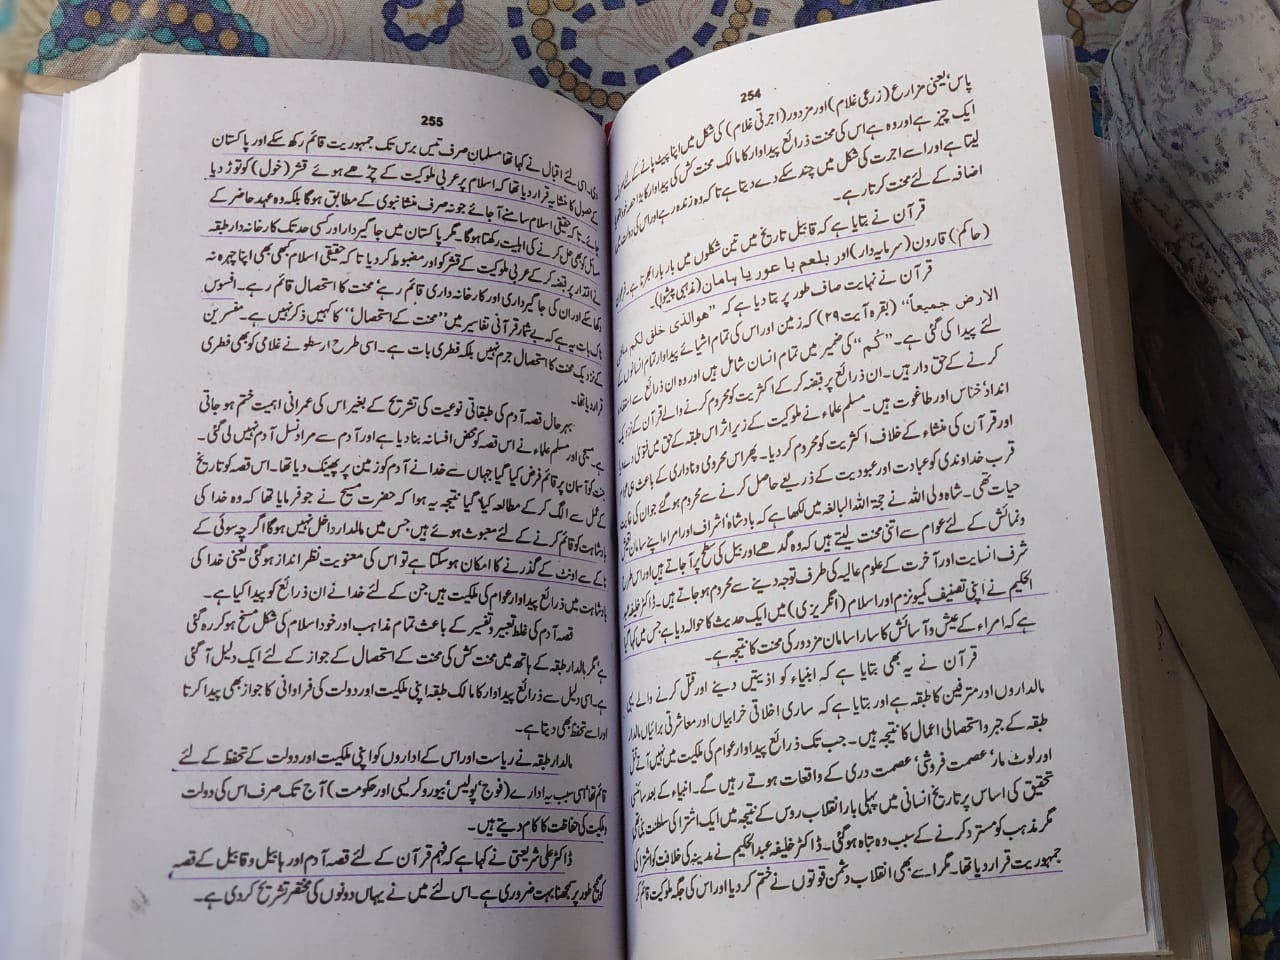 254
پاس، یعنی مزارع (زرعی غلام) اور مزدور (اجرتی غلام) کی شکل میں اپنا پیٹ پالنے کے لئے
ایک چیز ہے اور وہ ہے اس کی محنت ذرائع پیداوار کا مالک محنت کش کی پیداوار کا بڑا حصہ
لیتا ہے اور اسے اجرت کی شکل میں چند سکے دے دیتا ہے تاکہ وہ زندہ رہے اور اس کی دولت میں
اضافہ کے لئے محنت کرتا رہے۔
قرآن نے بتایا ہے کہ قابیل تاریخ میں تین شکلوں میں بار بار ابھرتا ہے۔
(حاکم) قارون (سرمایہ دار) اور بلعم باعور یا ہامان (مذہبی پیشوا)۔
قرآن نے نہایت صاف طور پر بتا دیا ہے کہ "ھوالذی خلق لکم مافی
الارض جمیعاً" (بقرہ آیت ۲۹) کہ زمین اور اس کی تمام اشیائے پیداوار تمام انسانوں کے
لئے پیدا کی گئی ہے۔ "کُم" کی ضمیر میں تمام انسان شامل ہیں اور وہ ان ذرائع سے استفادہ
کرنے کے حق دار ہیں۔ ان ذرائع پر قبضہ کر کے اکثریت کو محروم کرنے والے قرآن کے نزدیک
انداد، خناس اور طاغوت ہیں۔ مسلم علماء نے ملوکیت کے زیر اثر اس طبقہ کے حق میں فتویٰ دے دیا
اور قرآن کی منشاء کے خلاف اکثریت کو محروم کر دیا۔ پھر اس محرومی و ناداری کے باعث ہی عوام
قرب خداوندی کو عبادت اور عبودیت کے ذریعے حاصل کرنے سے محروم ہو گئے جو ان کی غایت
حیات تھی۔ شاہ ولی اللہ نے حجۃ اللہ البالغہ میں لکھا ہے کہ بادشاہ، اشراف اور امراء اپنے سامان
ونمائش کے لئے عوام سے اتنی محنت لیتے ہیں کہ وہ گدھے اور بیل کی سطح پر آ جاتے ہیں اور اس طرح
شرف انسایت اور آخرت کے علوم عالیہ کی طرف توجہ دینے سے محروم ہو جاتے ہیں۔ ڈاکٹر خلیفہ
الحکیم نے اپنی تصنیف کمیونزم اور اسلام (انگریزی) میں ایک حدیث کا حوالہ دیا ہے جس میں کہا گیا
ہے کہ امراء کے عیش و آسائش کا سارا سامان مزدور کی محنت کا نتیجہ ہے۔
قرآن نے یہ بھی بتایا ہے کہ انبیاء کو اذیتیں دینے اور قتل کرنے والے یہی
مالداروں اور مترفین کا طبقہ ہے اور بتایا ہے کہ ساری اخلاقی خرابیاں اور معاشرتی برائیاں مالدار
طبقہ کے جبر و استحصالی اعمال کا نتیجہ ہیں۔ جب تک ذرائع پیداوار عوام کی ملکیت میں نہیں آتے قتل
اور لوٹ مار، عصمت فروشی، عصمت دری کے واقعات ہوتے رہیں گے۔ انبیاء کے بعد سائنسی
تحقیق کی اساس پر تاریخ انسانی میں پہلی بار انقلاب روس کے نتیجہ میں ایک اشتراکی سلطنت بنی تھی
مگر مذہب کو مسترد کرنے کے سبب وہ تباہ ہو گئی۔ ڈاکٹر خلیفہ عبدالحکیم نے مدینہ کی خلافت کو اشتراکی
جمہوریت قرار دیا تھا۔ مگر اسے بھی انقلاب دشمن قوتوں نے ختم کر دیا اور اس کی جگہ ملوکیت قائم کر
255
دی۔ اسی لئے اقبال نے کہا تھا مسلمان صرف تیس برس تک جمہوریت قائم رکھ سکے اور پاکستان
کے حصول کا منشا یہ قرار دیا تھا کہ اسلام پر عربی ملوکیت کے چڑھے ہوئے قشر (خول) کو توڑ دیا
جائے۔ تاکہ حقیقی اسلام سامنے آ جائے جو نہ صرف منشا نبوی کے مطابق ہوگا بلکہ وہ عہد حاضر کے
مسائل کو بھی حل کرنے کی اہلیت رکھتا ہوگا۔ مگر پاکستان میں جاگیردار اور کسی حد تک کارخانہ دار طبقہ
نے اقتدار پر قبضہ کر کے عربی ملوکیت کے قشر کو اور مضبوط کر دیا تاکہ حقیقی اسلام، کبھی بھی اپنا چہرہ نہ
دکھا سکے اور ان کی جاگیرداری اور کارخانہ داری قائم رہے، محنت کا استحصال قائم رہے۔ افسوس
ناک بات یہ ہے کہ بے شمار قرآنی تفاسیر میں "محنت کے استحصال" کا کہیں ذکر نہیں ہے۔ مفسرین
کے نزدیک محنت کا استحصال جرم نہیں بلکہ فطری بات ہے۔ اسی طرح ارسطو نے غلامی کو بھی فطری
قرار دیا تھا۔
بہر حال قصہ آدم کی طبقاتی نوعیت کی تشریح کے بغیر اس کی عمرانی اہمیت ختم ہو جاتی
ہے۔ مسیحی اور مسلم علماء نے اس قصہ کو محض افسانہ بنا دیا ہے اور آدم سے مراد نسل آدم نہیں لی گئی۔
جنت کو آسمان پر قائم فرض کیا گیا جہاں سے خدا نے آدم کو زمین پر پھینک دیا تھا۔ اس قصہ کو تاریخ
کے عمل سے الگ کر کے مطالعہ کیا گیا، نتیجہ یہ ہوا کہ حضرت مسیح نے جو فرمایا تھا کہ وہ خدا کی
بادشاہت کو قائم کرنے کے لئے مبعوث ہوئے ہیں جس میں مالدار داخل نہیں ہوگا اگرچہ سوئی کے
ناکے سے اونٹ کے گذرنے کا امکان ہو سکتا ہے تو اس کی معنویت نظر انداز ہو گئی یعنی خدا کی
بادشاہت میں ذرائع پیداوار عوام کی ملکیت ہیں جن کے لئے خدا نے ان ذرائع کو پیدا کیا ہے۔
قصہ آدم کی غلط تعبیر و تفسیر کے باعث تمام مذاہب اور خود اسلام کی شکل مسخ ہو کر رہ گئی
ہے، مگر مالدار طبقہ کے ہاتھ میں محنت کش کی محنت کے استحصال کے جواز کے لئے ایک دلیل آ گئی
ہے۔ اسی دلیل سے ذرائع پیداوار کا مالک طبقہ اپنی ملکیت اور دولت کی فراوانی کا جواز بھی پیدا کرتا
اور اسے تحفظ بھی دیتا ہے۔
مالدار طبقہ نے ریاست اور اس کے اداروں کو اپنی ملکیت اور دولت کے تحفظ کے لئے
قائم تھا، اسی سبب یہ ادارے (فوج، پولیس، بیوروکریسی اور حکومت) آج تک صرف اس کی دولت
و ملکیت کی حفاظت کا کام دیتے ہیں۔
ڈاکٹر علی شریعتی نے کہا ہے کہ فہم قرآن کے لئے قصہ آدم اور ہابیل و قابیل کے قصہ
کو صحیح طور پر سمجھنا بہت ضروری ہے۔ اس لئے میں نے یہاں دونوں کی مختصر تشریح کر دی ہے۔